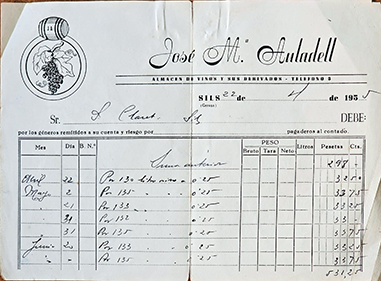 José Mª Auladell
ALMACEN DE VINOS Y SUS DERIVADOS - TELEFONO 8
SILS 22 de 4 de 1955
(Gerona)
Sr. Claret DEBE:
por los géneros remitidos a su cuenta y riesgo por pagaderos al contado.
Mes Día B. N.º PESO Bruto Tara Neto Litros Pesetas Cts.
Suma anterior 297 -
Abril 22 Por 130 litro vino a 0'25 32 50
Mayo 2 Por 135 " 0'25 33 75
" 21 Por 133 " 0'25 33 25
" 31 Por 132 " 0'25 33 -
31 Por 135 " 0'25 33 75
Junio 20 Por 133 " 0'25 33 25
" " Por 135 " 0'25 33 75
531,25